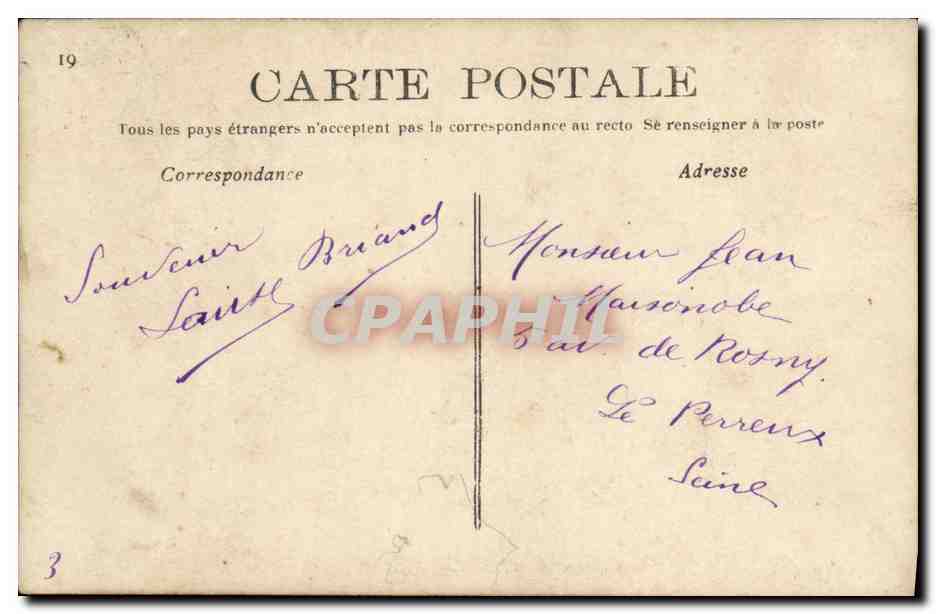 19
CARTE POSTALE
Tous les pays étrangers n'acceptent pas la correspondance au recto Se renseigner à la poste
Correspondance
Adresse
Souvenir
Briand
CPAPHIL
Monsieur Jean
Maisonobe
5 av. de Rosny.
Le Perreux
Seine
3